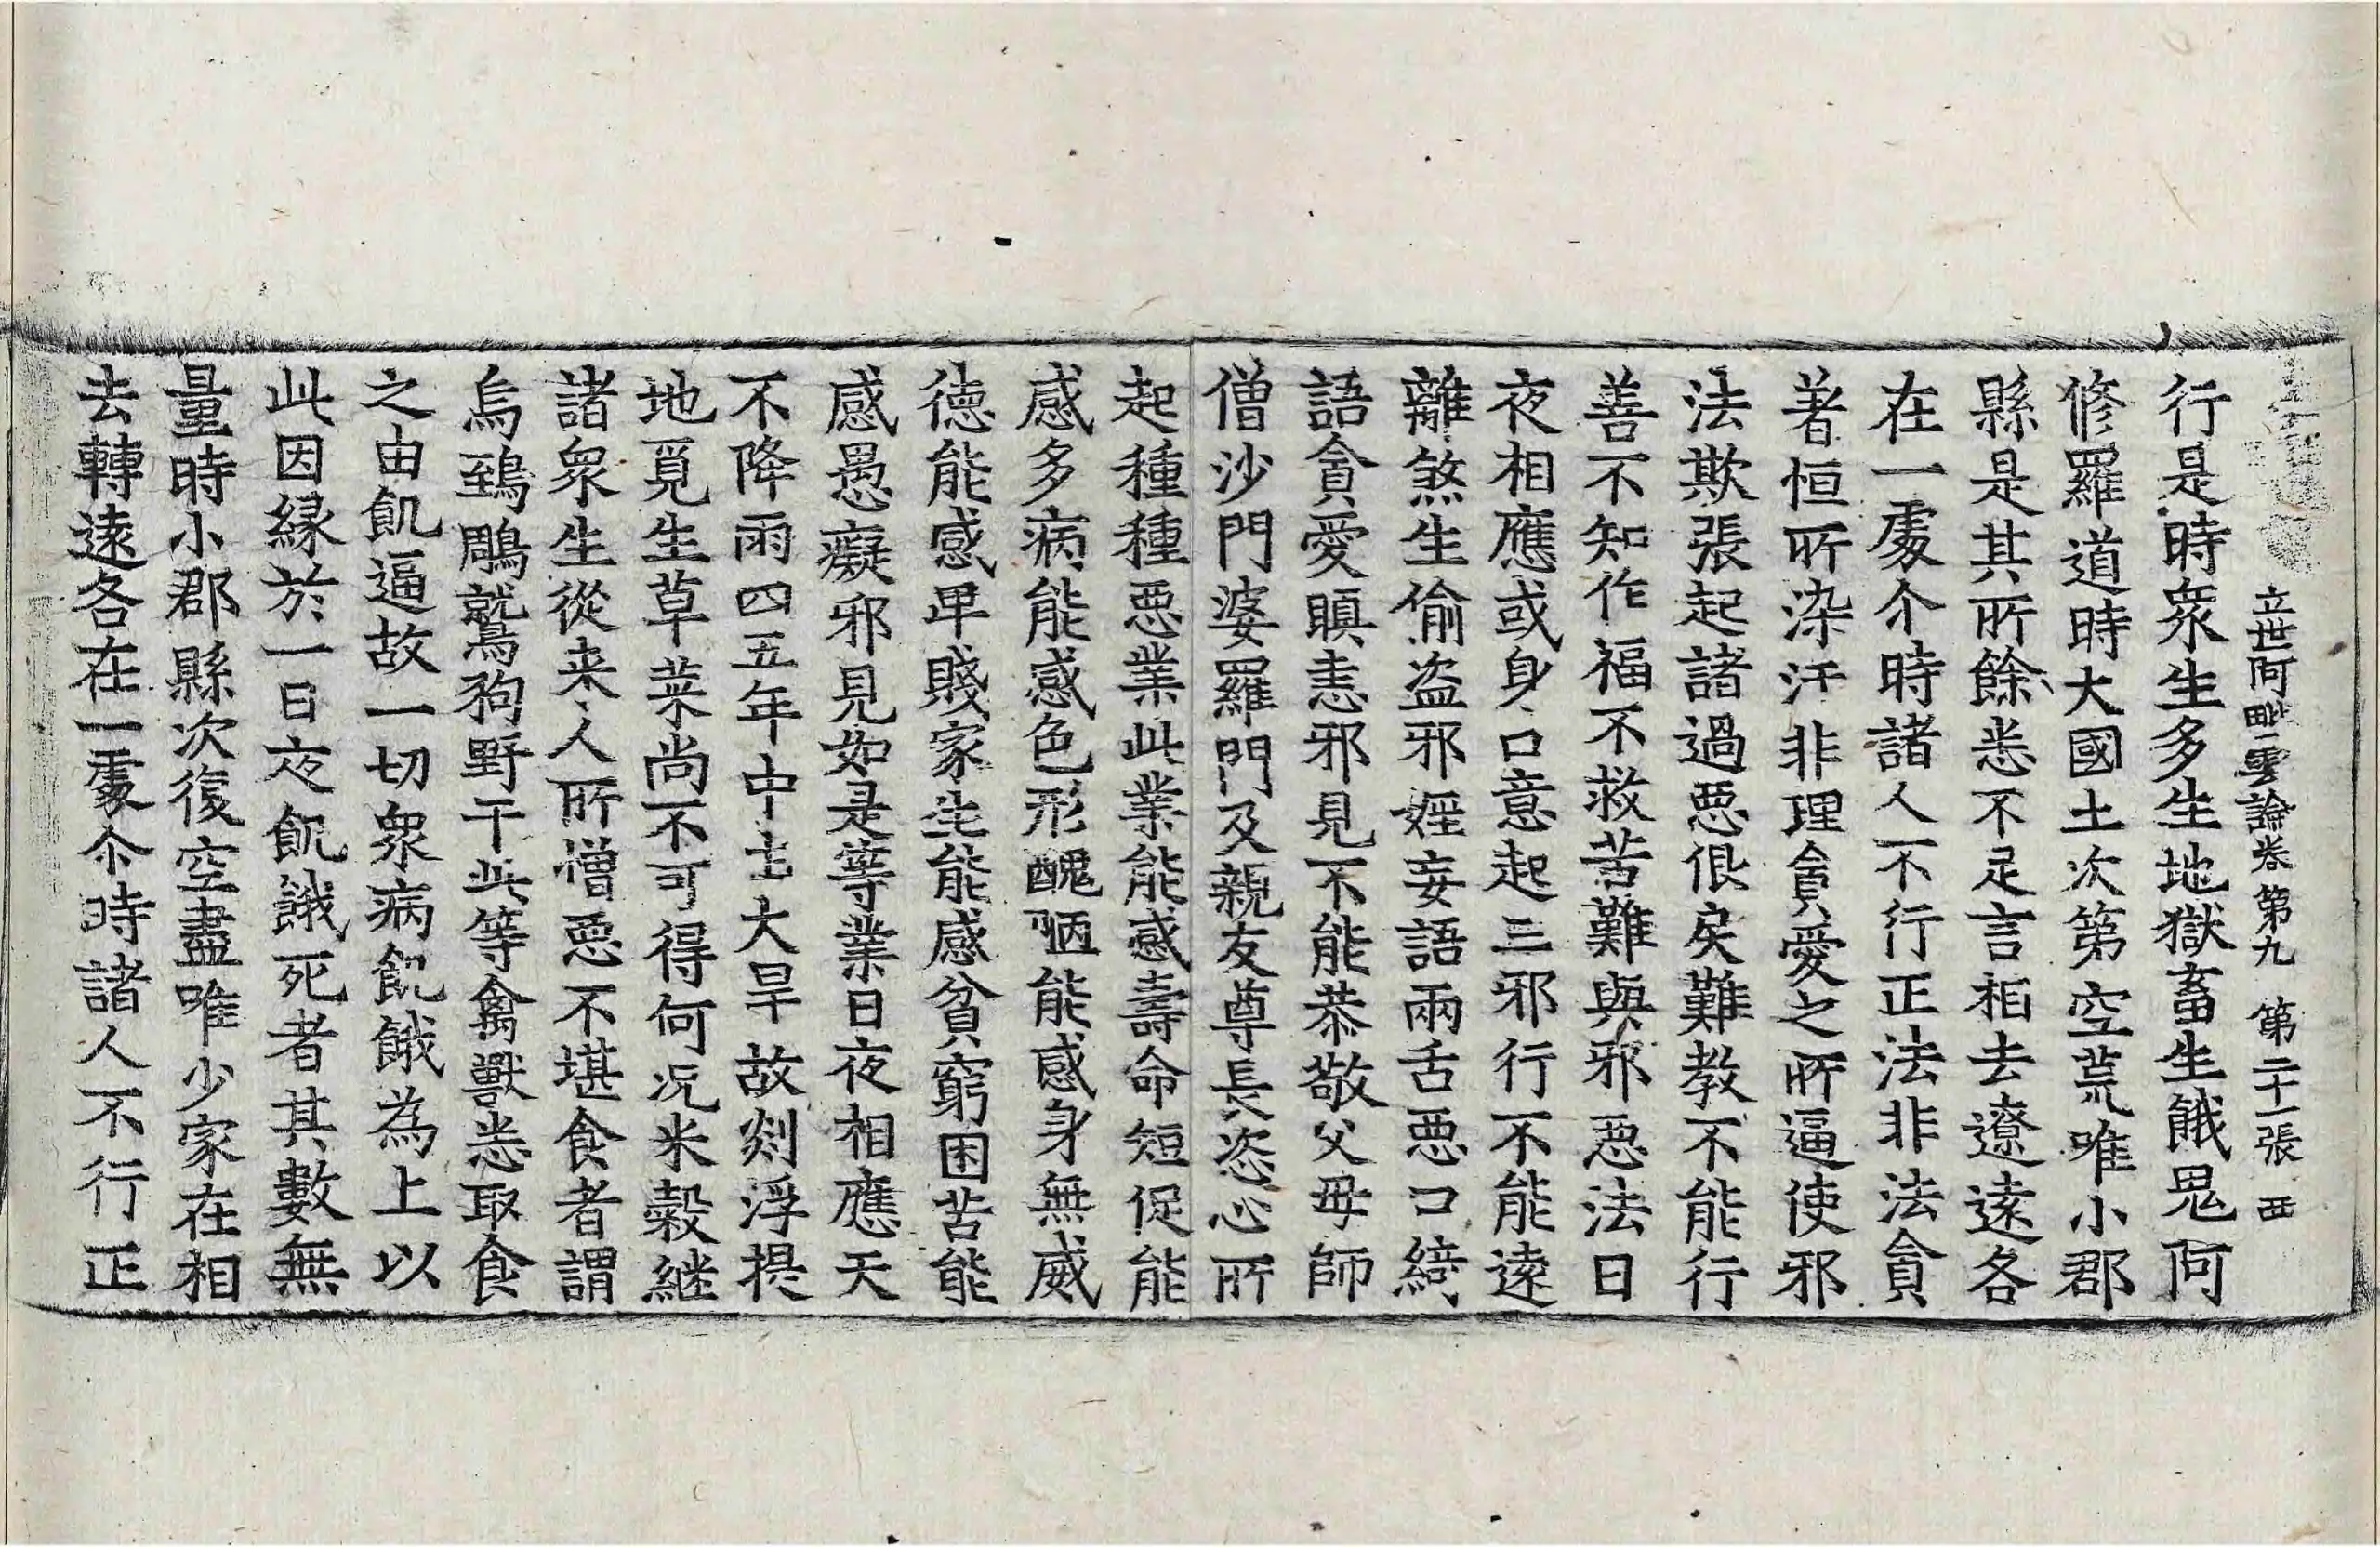 立世阿毗曇論卷第九 第二十一張 西
行是時衆生多生地獄畜生餓鬼阿
修羅道時大國土次第空荒唯小郡
縣是其所餘悉不足言相去遼遠各
在一處尒時諸人不行正法非法貪
著恒所染汙非理貪愛之所逼使邪
法欺張起諸過惡佷戾難教不能行
善不知作福不救苦難與邪惡法日
夜相應或身口意起三邪行不能遠
離煞生偷盗邪婬妄語兩舌惡口綺
語貪愛瞋恚邪見不能恭敬父母師
僧沙門婆羅門及親友尊長恣心所
起種種惡業此業能感壽命短促能
感多病能感色形醜陋能感身無威
德能感卑賤家生能感貧窮困苦能
感愚癡邪見如是等業日夜相應天
不降雨四五年中由大旱故剡浮提
地覓生草菜尚不可得何况米穀継
諸衆生從来人所憎惡不堪食者謂
烏鵄鵰鷲狗野干此等禽獸悉取食
之由飢逼故一切衆病飢餓為上以
此因縁於一日夜飢餓死者其數無
量時小郡縣次復空盡唯少家在相
去轉遠各在一處尒時諸人不行正